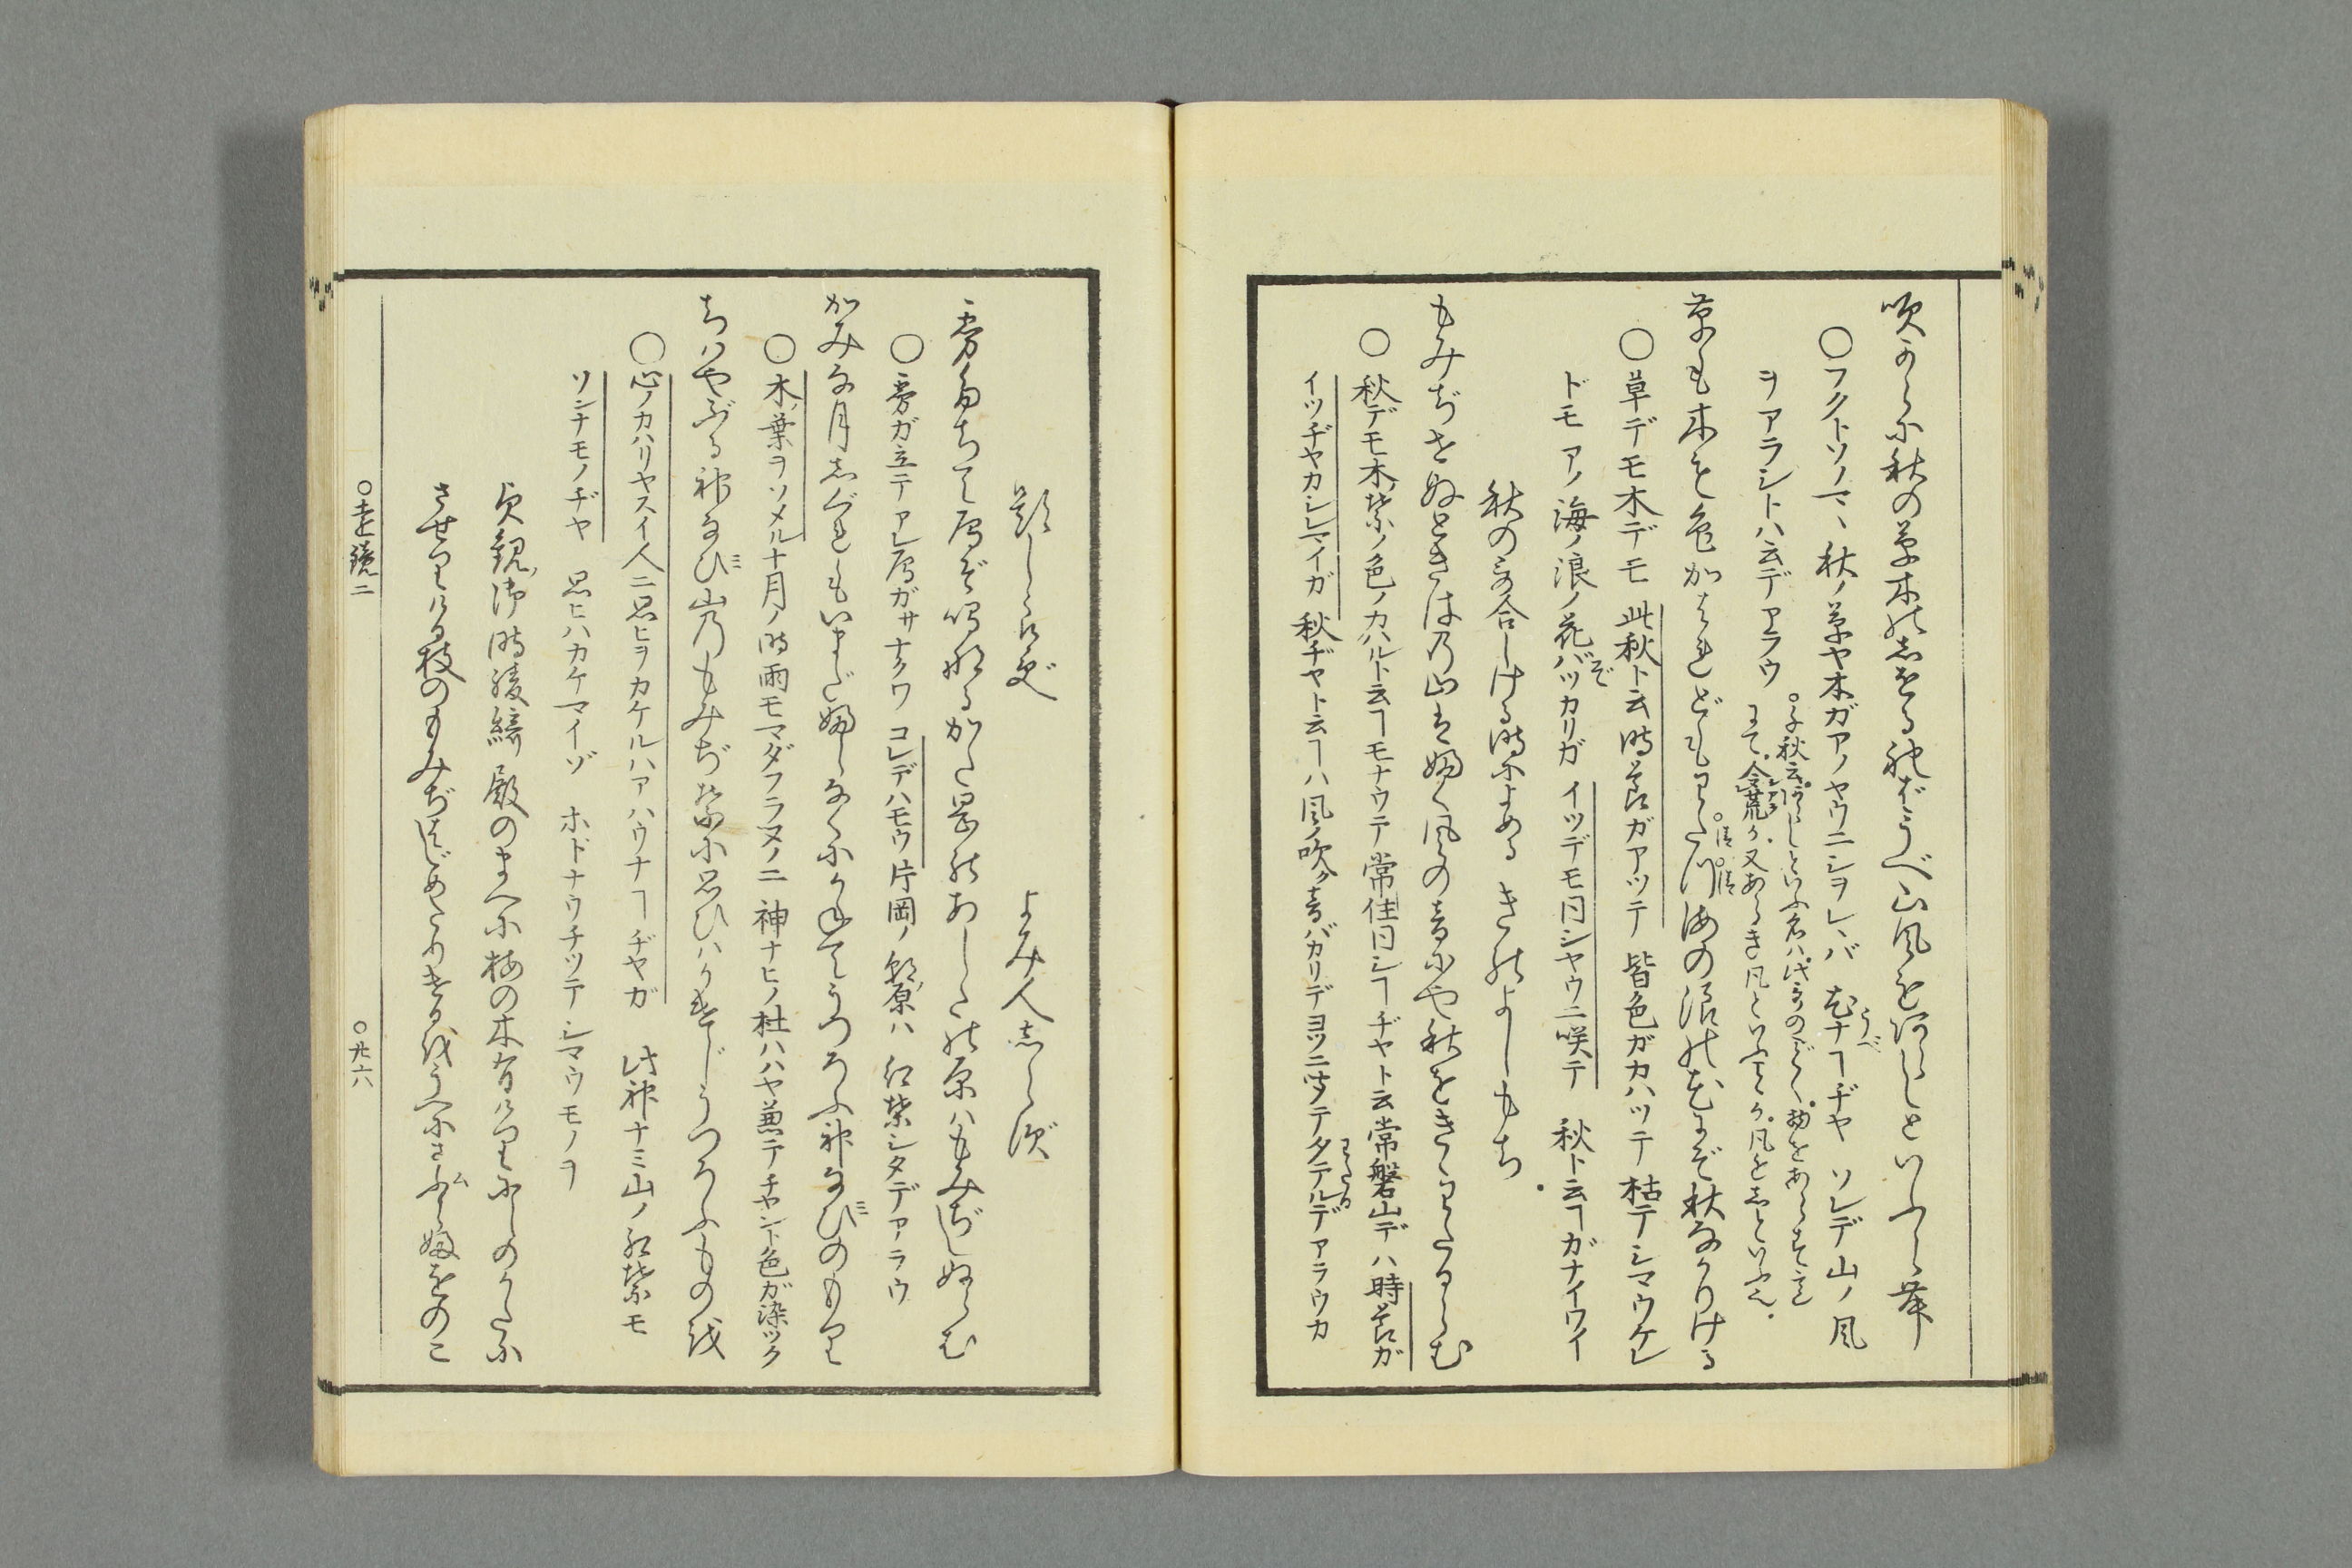 吹からに秋の草木のしをるればうべ山風をあらしといふらむ
○フクトソノマヽ秋ノ草ヤ木ガアノヤウニシヲレヽバ尤ナヿヂヤソレデ山ノ風
ヲアラシトハ云デアラウ
草も木も色かはれどもわたつ海の浪の花にぞ秋なかりける
○草デモ木デモ此秋ト云時節ガアツテ皆色ガカハツテ枯テシマウケレ
ドモアノ海ノ浪ノ花バツカリガイツデモ同シヤウニ咲テ秋ト云ヿガナイワイ
秋の哥合しける時によめる きのよしもち
もみぢせぬときはの山は吹風の音にや秋をきゝわたるらむ
○秋デモ木ノ葉ノ色ノカハルト云ヿモナウテ常住同シヿヂヤト云常磐山デハ時節ガ
イツヂヤカシレマイガ秋ヂヤト云ヿハ風ノ吹ク音バカリデヨソニ聞テタテルデアラウカ
題しらず よみ人しらず
霧たちて鴈ぞ鳴なるかた岡のあしたの原はもみぢしぬらむ
○霧ガ立テアレ鴈ガサナクワコレデハモウ片岡ノ朝ノ原ハ紅葉シタデアラウ
かみな月しぐれもいまだ降らなくにかねてうつろふ神なびのもり
○木ノ葉ヲソメル十月ノ時雨モマダフラヌノニ神ナヒノ杜ハハヤ兼テチヤント色ガ染ツク
ちはやぶる神なび山のもみぢ葉に思ひはかけじうつろふものを
○心ノカハリヤスイ人ニ思ヒヲカケルハアハウナヿヂヤガ此神ナミ山ノ紅葉モ
ソンナモノヂヤ思ヒハカケマイゾホドナウチツテシマウモノヲ
貞観ノ御時綾綺殿のまへに梅の木有けりにしのかたに
させりける枝のもみぢはじめたりけるをうへにさふらふをのこ
○遠鏡二 ○廿六